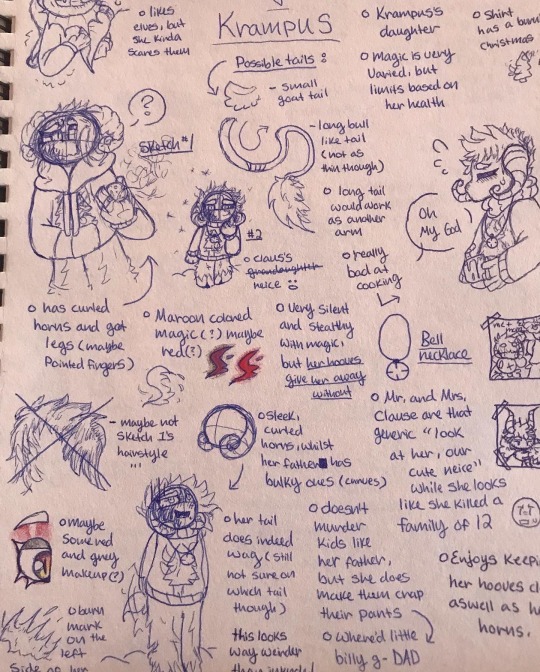 o likes
elves, but
she kinda
scares them
Krampus
o Krampus's
daughter
o Magic is very
varied, but
limits based on
her health
o Shirt
has a
christmas
Possible tails:
- small
goat tail
- long bull
like tail
(not as
thin though)
o long tail
would work
as another
arm
?
Sketch #1
#2
o Claus's
neice
o really
bad at
cooking
Oh
My God
o has curled
horns and goat
legs (maybe
pointed fingers)
o Maroon colored
magic(?) maybe
red(?)
o Very silent
and stealthy
with magic,
but her hooves
give her away
without
Bell
necklace
- maybe not
sketch 1's
hairstyle
o sleek,
curled
horns, whilst
her father has
bulky ones (curves)
o Mr. and Mrs.
Clause are that
generic "look
at her, our
cute neice"
while she looks
like she killed a
family of 12
o maybe
some red
and grey
makeup(?)
o her tail
does indeed
wag (still
not sure on
which tail
though)
o doesn't
murder
kids like
her father,
but she does
make them crap
their pants
o Enjoys
her hooves
aswell as
horns.
o burn
mark
on the
left
side of her
this looks
way weirder
o where'd little
billy g- DAD